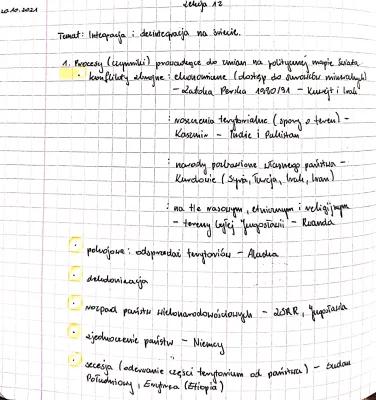 20.10.2021
Lekcja 12
Temat: Integracja i dezintegracja na świecie.
1. Procesy (czynniki) prowadzące do zmian na politycznej mapie świata
• konflikty zbrojne: ekonomiczne (dostęp do surowców mineralnych)
– Zatoka Perska 1990/91 – Kuwejt i Irak
: roszczenia terytorialne (spory o teren) –
Kaszmir – Indie i Pakistan
: narody pozbawione własnego państwa –
Kurdowie (Syria, Turcja, Irak, Iran)
: na tle rasowym, etnicznym i religijnym
– tereny byłej Jugosławii – Rwanda
• pokojowe: odsprzedaż terytoriów – Alaska
• dekolonizacja
• rozpad państw wielonarodowościowych – ZSRR, Jugosławia
• zjednoczenie państw – Niemcy
• secesja (oderwanie części terytorium od państwa) – Sudan
Południowy, Erytrea (Etiopia)